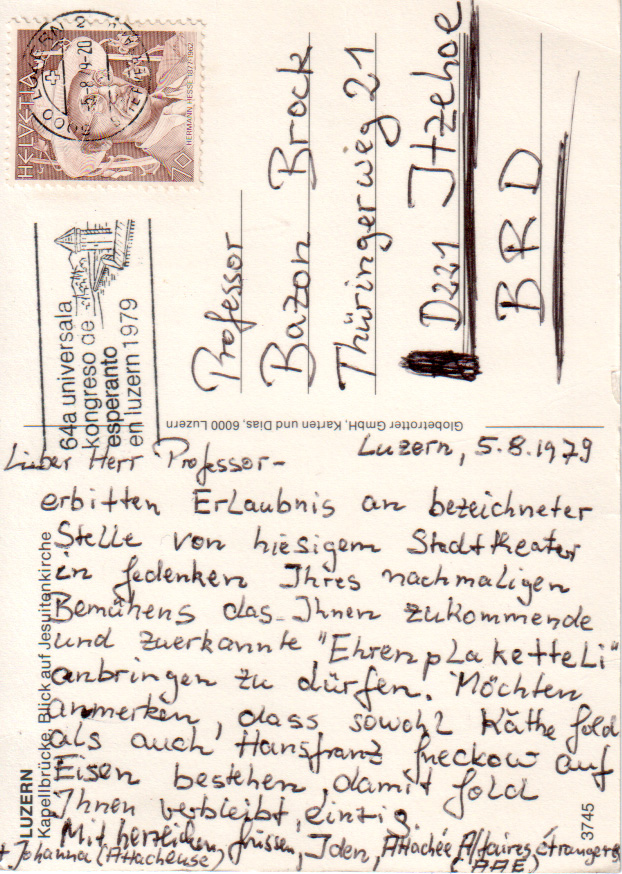 HELVETIA
70
HERMANN HESSE 1877-1962
6000 LUZERN 2
-5.-8.79-20
64a universala
kongreso de
esperanto
en luzern 1979
Professor
Bazon Brock
Thüringerweg 21
D221 Itzehoe
BRD
Globetrotter GmbH, Karten und Dias, 6000 Luzern
Luzern, 5.8.1979
Lieber Herr Professor-
erbitten Erlaubnis an bezeichneter
Stelle von hiesigem Stadttheater
in Gedenken Ihres nachmaligen
Bemühens das Ihnen zukommende
und zuerkannte "EhrenpLaketteLi"
anbringen zu dürfen. Möchten
anmerken, dass sowohl Käthe Gold
als auch Hansfranz Gneckow auf
Eisen bestehen, damit Gold
Ihnen verbleibt, einzig
Mit herzlichen Grüssen, Iden, Attachée Affaires étrangers
Johanna (Attacheuse) (AAE)
LUZERN
Kapellbrücke, Blick auf Jesuitenkirche
3745